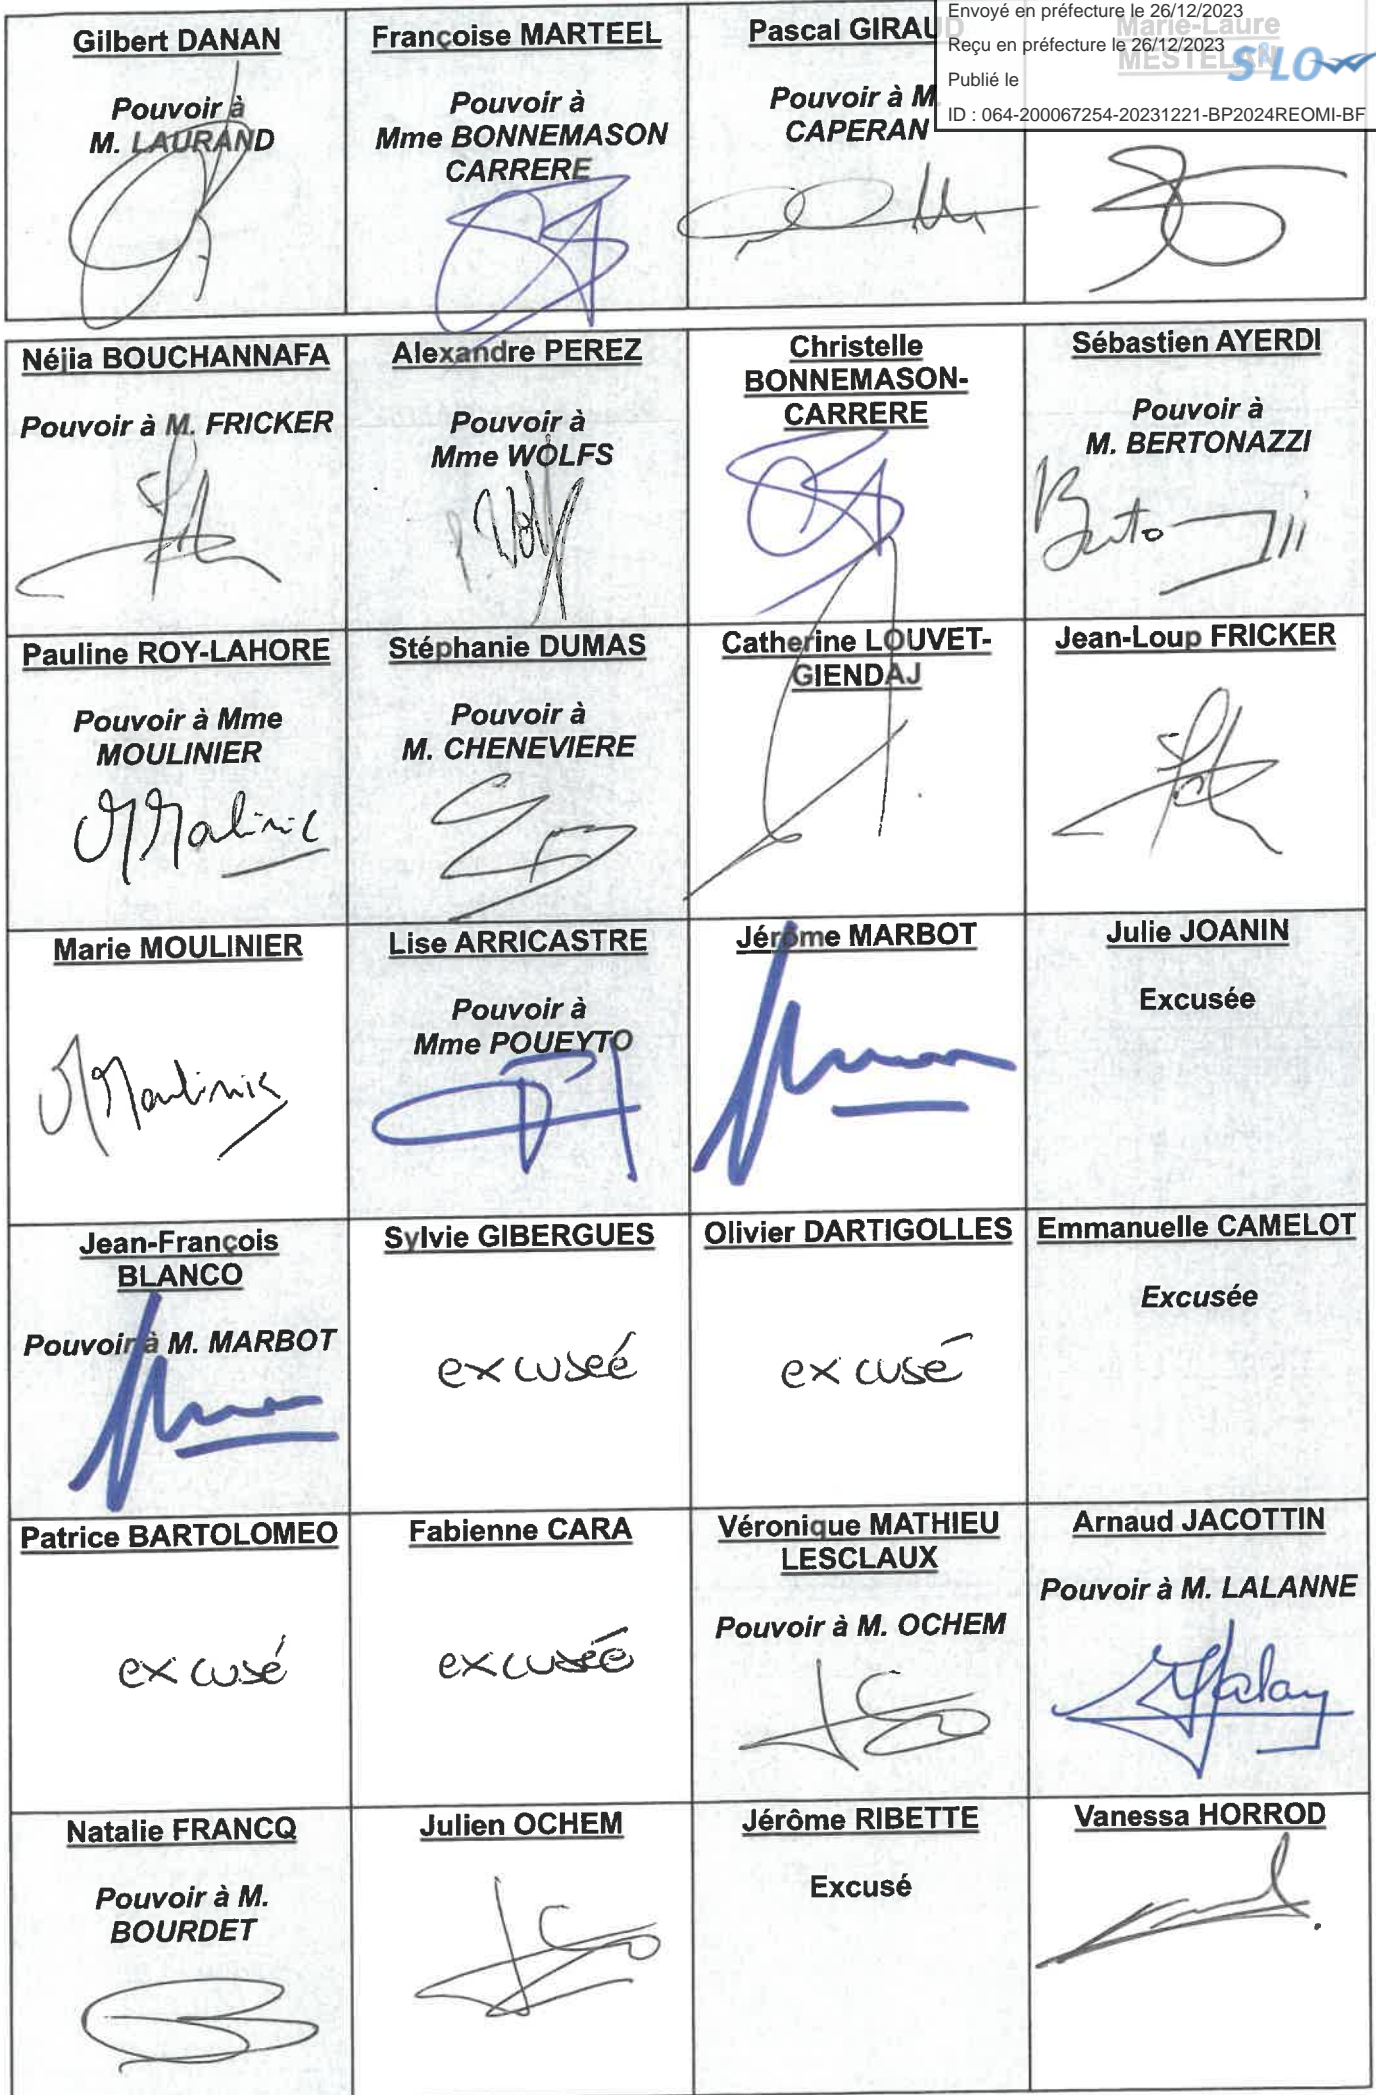 Envoyé en préfecture le 26/12/2023
Reçu en préfecture le 26/12/2023
Publié le
ID : 064-200067254-20231221-BP2024REOMI-BF
S²LO
Gilbert DANAN
Pouvoir à
M. LAURAND
Françoise MARTEEL
Pouvoir à
Mme BONNEMASON
CARRERE
Pascal GIRAUD
Pouvoir à M.
CAPERAN
Marie-Laure
MESTELAN
Néjia BOUCHANNAFA
Pouvoir à M. FRICKER
Alexandre PEREZ
Pouvoir à
Mme WOLFS
Christelle
BONNEMASON-
CARRERE
Sébastien AYERDI
Pouvoir à
M. BERTONAZZI
Pauline ROY-LAHORE
Pouvoir à Mme
MOULINIER
Stéphanie DUMAS
Pouvoir à
M. CHENEVIERE
Catherine LOUVET-
GIENDAJ
Jean-Loup FRICKER
Marie MOULINIER
Lise ARRICASTRE
Pouvoir à
Mme POUEYTO
Jérôme MARBOT
Julie JOANIN
Excusée
Jean-François
BLANCO
Pouvoir à M. MARBOT
Sylvie GIBERGUES
excuseé
Olivier DARTIGOLLES
excusé
Emmanuelle CAMELOT
Excusée
Patrice BARTOLOMEO
excusé
Fabienne CARA
excusée
Véronique MATHIEU
LESCLAUX
Pouvoir à M. OCHEM
Arnaud JACOTTIN
Pouvoir à M. LALANNE
Natalie FRANCQ
Pouvoir à M.
BOURDET
Julien OCHEM
Jérôme RIBETTE
Excusé
Vanessa HORROD